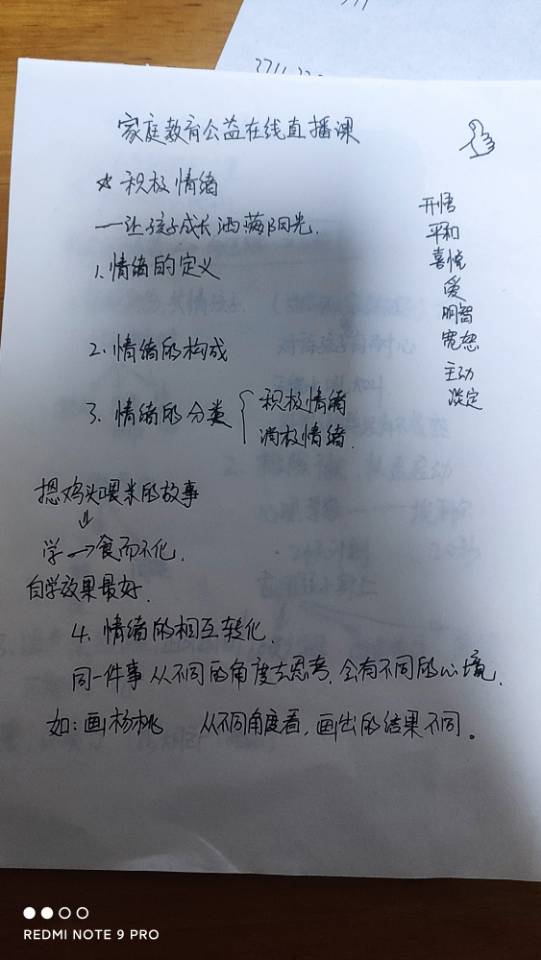 家庭教育公益在线直播课
☆ 积极情绪
—让孩子成长洒满阳光.
1.情绪的定义
2.情绪的构成
3.情绪的分类 { 积极情绪
消极情绪.
开悟
平和
喜悦
爱
明智
宽恕
主动
淡定
摁鸡头喂米的故事
⇓
学→食而不化.
自学效果最好.
4.情绪的相互转化.
同一件事从不同的角度去思考.会有不同的心境.
如:画杨桃 从不同角度看,画出的结果不同。
REDMI NOTE 9 PRO